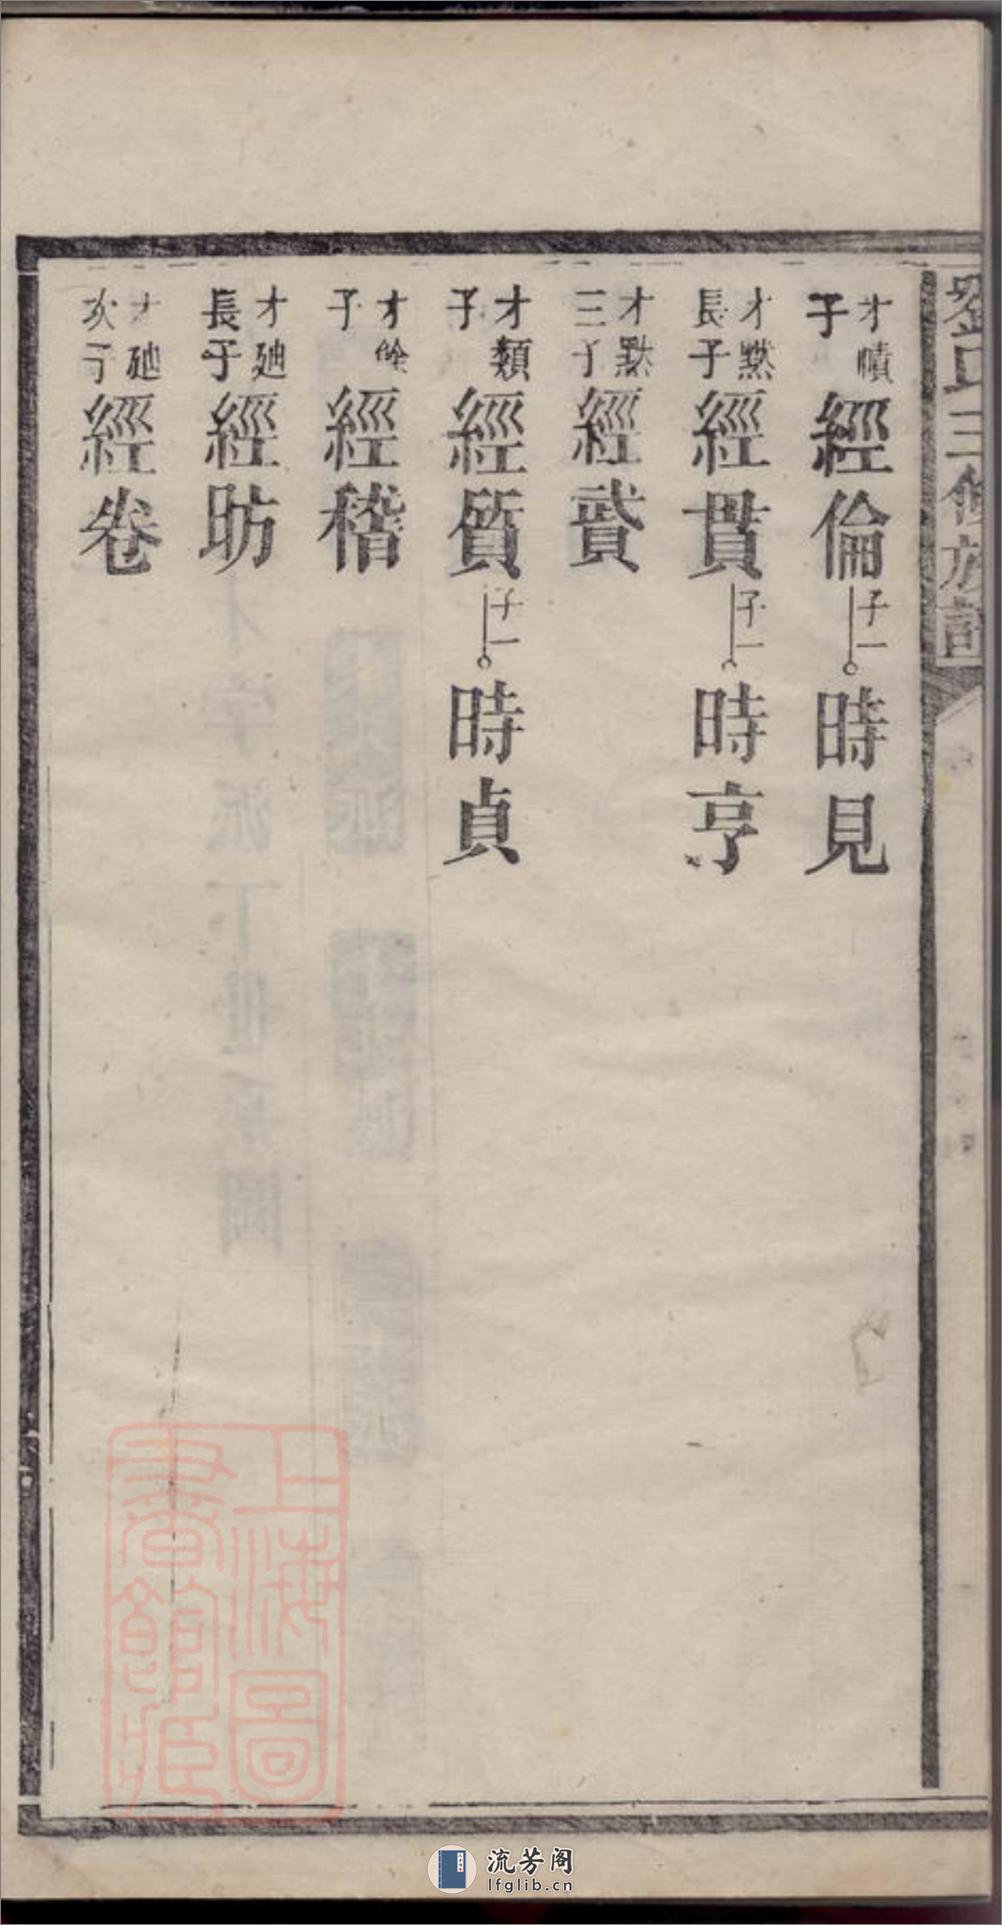 劉氏三修族譜
才幘子 經倫 子一 時見
才黙長子 經貫 子一 時亨
才黙三子 經賓
才類子 經質 子一 時貞
才賒子 經稽
才廸長子 經昉
才廸次子 經卷
上海圖書館藏
流芳阁
lfglib.cn